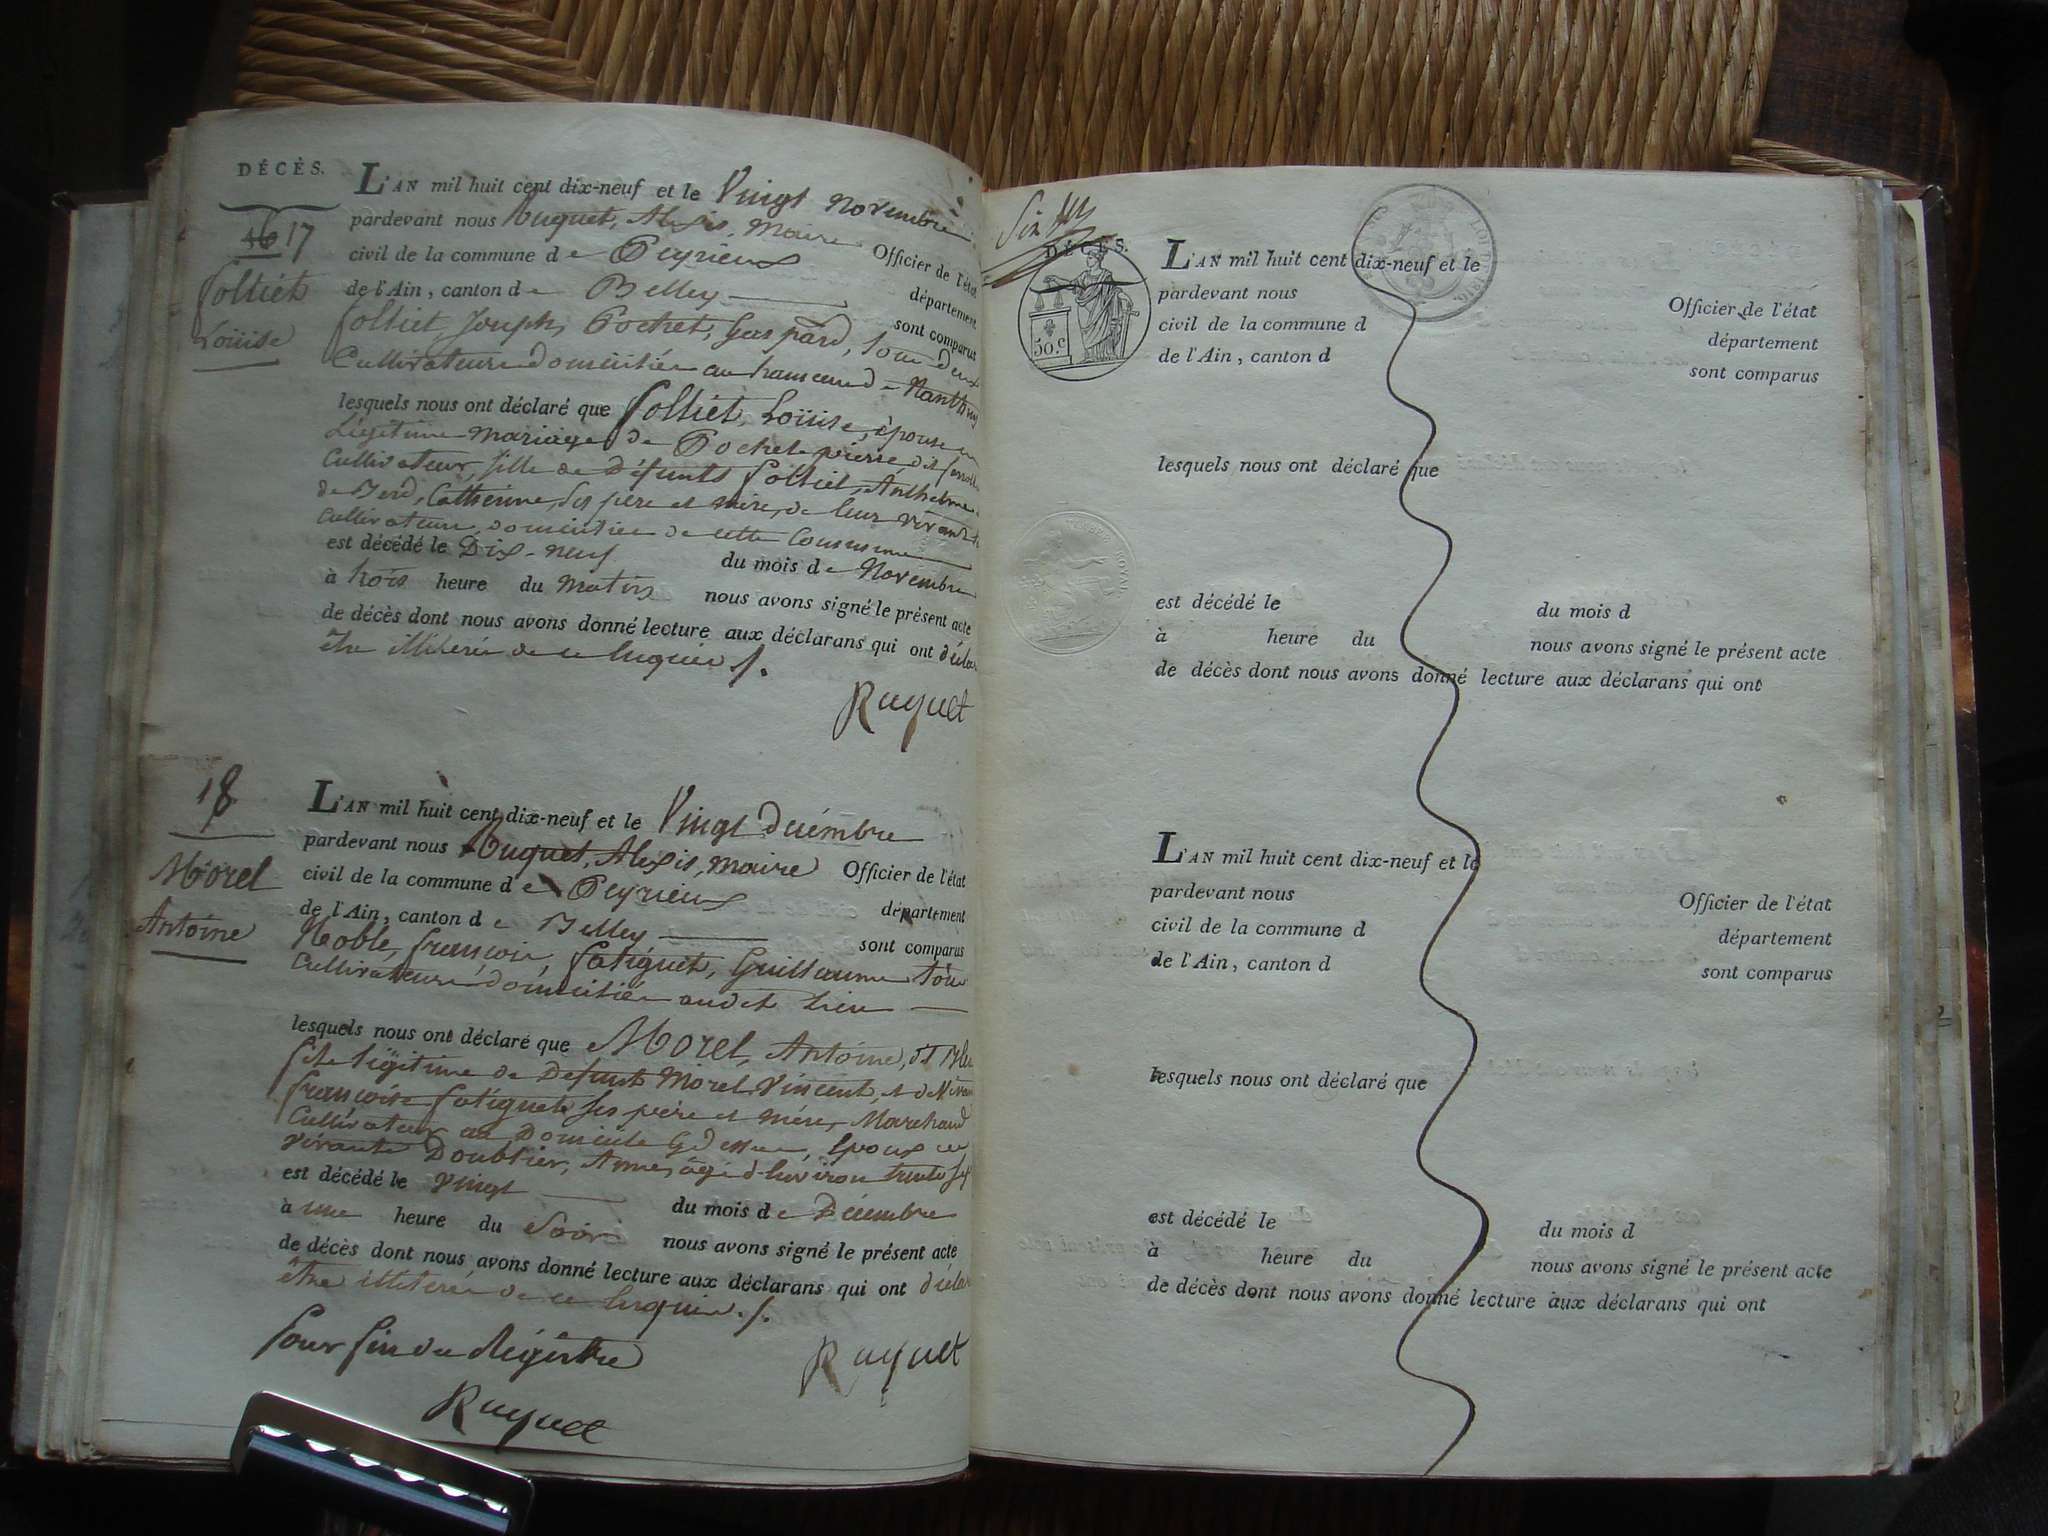 DÉCÈS.
17
Folliet
Louise
L'AN mil huit cent dix-neuf et le Vingt Novembre
pardevant nous Ruquet, Alexis, Maire Officier de l'état
civil de la commune de Peyrieux département
de l'Ain, canton de Belley sont comparus
Folliet Joseph, Pochet, Gaspard, tous deux
Cultivateurs domiciliés au hameau de
lesquels nous ont déclaré que Folliet, Louise, épouse en
Légitime mariage de Pochet pierre, dit
Cultivateur, fille de Défunts Folliet, Anthelme
Catherine, ses père et mère, de leur vivant
Cultivateurs domiciliés de cette Commune
est décédé le Dix-neuf du mois de Novembre
à trois heure du matin nous avons signé le présent acte
de décès dont nous avons donné lecture aux déclarans qui ont déclaré
être illitérés de ce enquis
Ruquet
18
Morel
Antoine
L'AN mil huit cent dix-neuf et le Vingt Décembre
pardevant nous Ruquet, Alexis, Maire Officier de l'état
civil de la commune de Peyrieux département
de l'Ain, canton de Belley sont comparus
Noble, françois, fatiguet, Guillaume tous
Cultivateurs domiciliés audit Lieu
lesquels nous ont déclaré que Morel, Antoine, dit
fils légitime de Defunt Morel Vincent, et de
françoise fatiguet ses père et mère, Marchand
Cultivateur au Domicile Epoux
vivante Doublier, Anne, âgé d'Environ trente
est décédé le Vingt du mois de Décembre
à une heure du Soir nous avons signé le présent acte
de décès dont nous avons donné lecture aux déclarans qui ont
être illitérés de ce enquis
Pour fin du Régistre
Ruquet
Ruquet
Six
DÉCÈS.
50.c
L'AN mil huit cent dix-neuf et le
pardevant nous Officier de l'état
civil de la commune d département
de l'Ain, canton d sont comparus
lesquels nous ont déclaré que
est décédé le du mois d
à heure du nous avons signé le présent acte
de décès dont nous avons donné lecture aux déclarans qui ont
L'AN mil huit cent dix-neuf et le
pardevant nous Officier de l'état
civil de la commune d département
de l'Ain, canton d sont comparus
lesquels nous ont déclaré que
est décédé le du mois d
à heure du nous avons signé le présent acte
de décès dont nous avons donné lecture aux déclarans qui ont